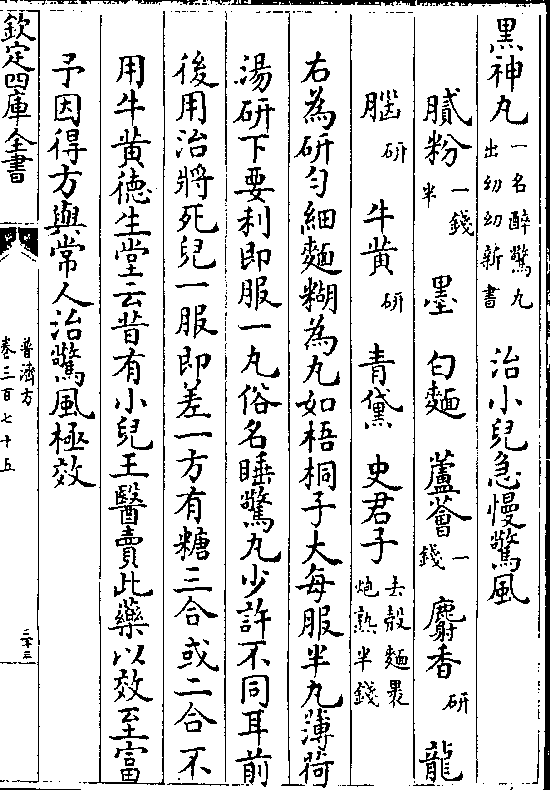 黑神丸一名醉驚丸出幼幼新書　治小兒急慢驚風
膩粉一錢半　墨　白麵　蘆薈一錢　麝香研　龍
腦研　牛黄研　青黛　史君子去殻麵裹炮熟半錢
右為研匀細麵糊為丸如梧桐子大每服半丸薄荷
湯研下要利即服一丸俗名睡驚丸少許不同耳前
後用治將死兒一服即差一方有糖三合或二合不
用牛黄徳生堂云昔有小兒王醫賣此藥以效至富
予因得方與常人治驚風極效
欽定四庫全書
普濟方
卷三百七十五